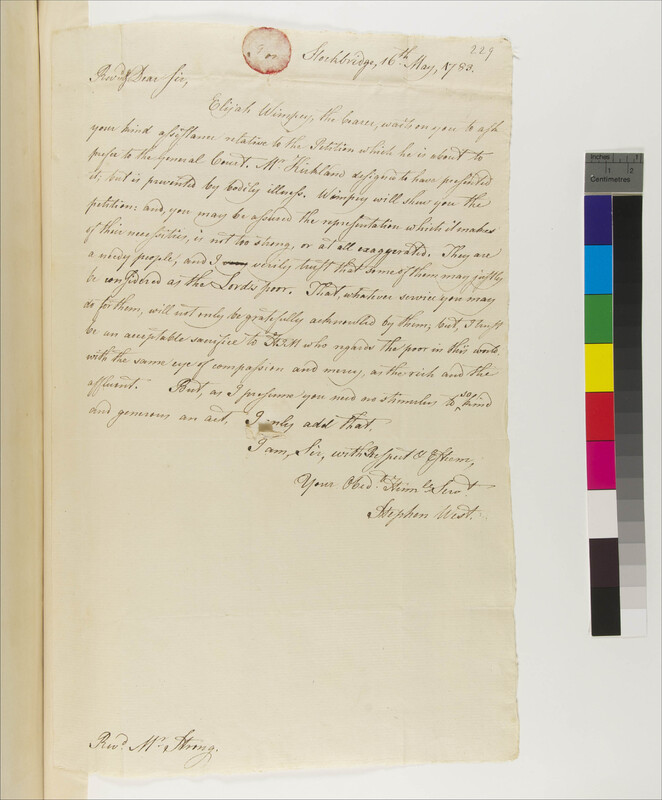 229
Stockbridge, 16th May, 1783.
Revd. & Dear Sir,
Elijah Wimpey, the bearer, waits on you to ask
your kind assistance relative to the Petition which he is about to
prefer to the general Court. Mr Kirkland designed to have presented
it; but is prevented by bodily illness. Wimpey will shew you the
petition: and, you may be assured the representation which it makes
of their necessities, is not too strong, or at all exaggerated. They are
a needy people, and I verily trust that some of them may justly
be considered as the Lord's poor. That, whatever service you may
do for them, will not only be gratefully acknowled by them; but, I trust
be an acceptable sacrifice to HIM who regards the poor in this world,
with the same eye of compassion and mercy, as the rich and the
affluent. But, as I presume you need no stimulus to so kind
and generous an act, I only add that
I am, Sir, with Respect & Esteem,
Your Obedt. Humle Servt.
Stephen West.
Revd. Mr. Strong.
Inches 1 2
Centimetres